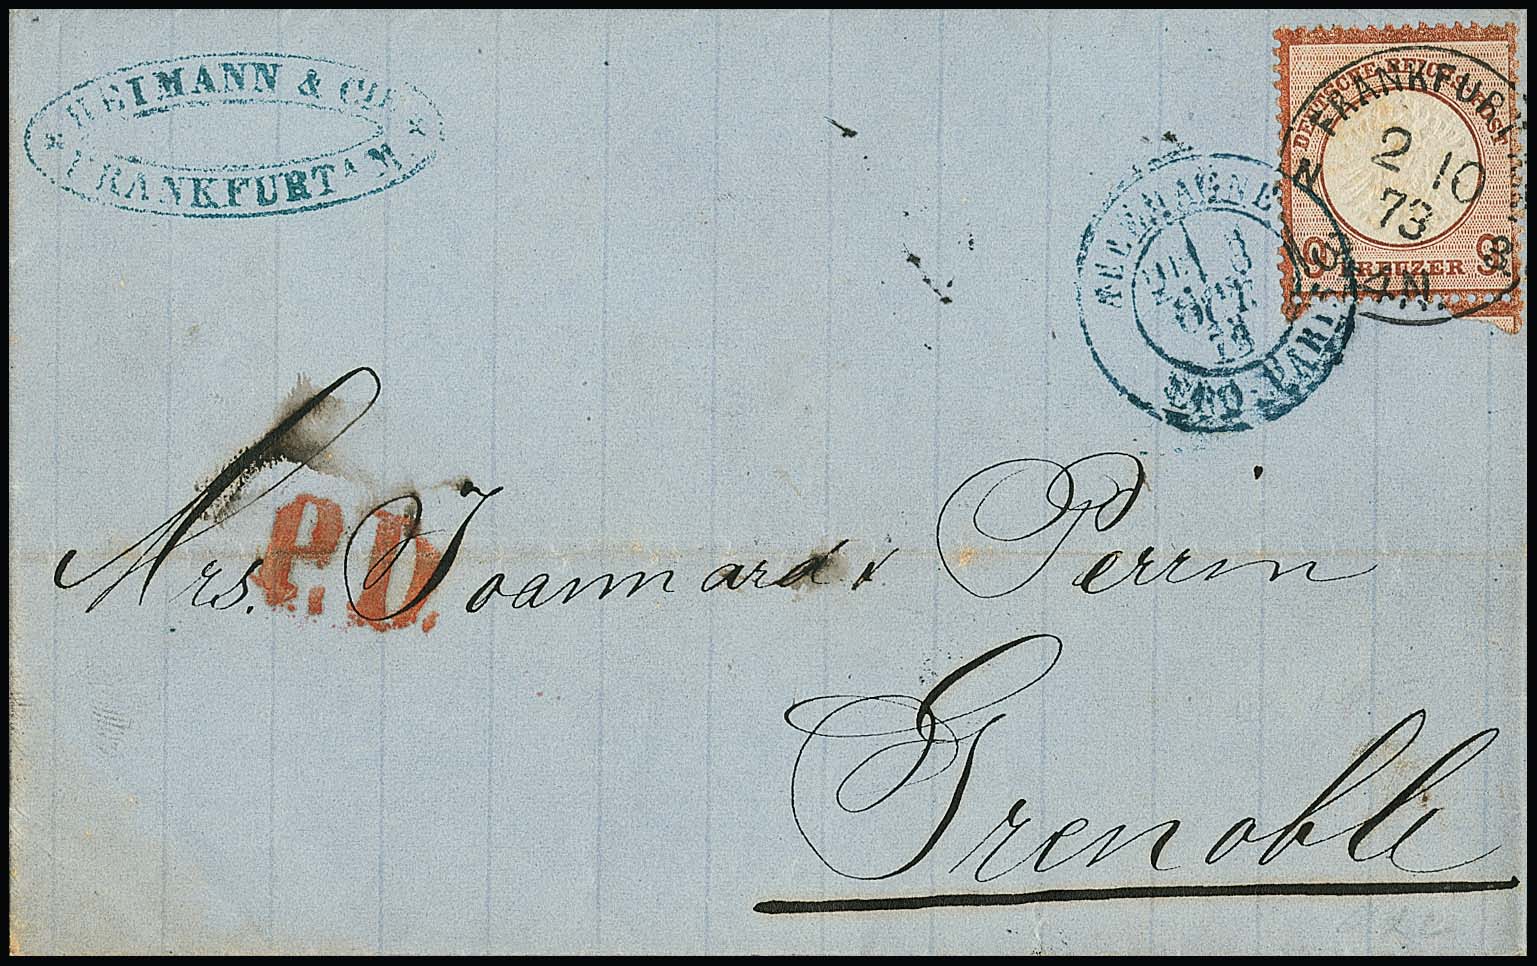 HEIMANN & CIE
FRANKFURT A M
DEUTSCHE REICHS-POST
9 KREUZER 9
FRANKFURT
2 10
73
ALLEMAGNE
3
OCT
73
ERQ. PARIS
P.D.
Mrs. Joannard & Perrin
Grenoble